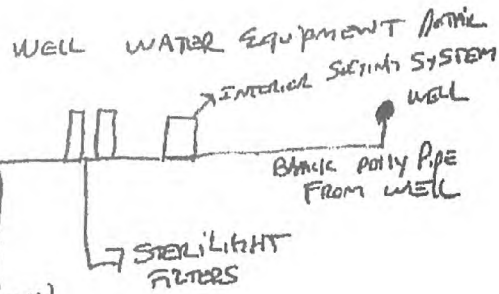 WELL WATER EQUIPMENT DETAIL
INTERIOR SYSTEM
WELL
BLACK POLY PIPE
FROM WELL
STERILIGHT
FILTERS